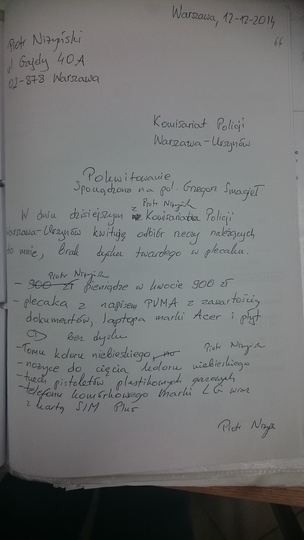 Warszawa, 12-12-2014
66
Piotr Niżyński
ul Gajdy 40A
02-878 Warszawa
Komisariat Policji
Warszawa-Ursynów
Pokwitowanie
Sporządzono na pol. Grzegorz
Piotr Niżyński
W dniu dzisiejszym z Komisariatu Policji
Warszawa-Ursynów kwituję odbiór rzeczy należących
do mnie, Brak dysku twardego w plecaku.
Piotr Niżyński
- 900 zł pieniądze w kwocie 900 zł
- plecaka z napisem PUMA z zawartością
dokumentów, laptopa marki Acer i płyt
CD bez dysku
- Łomu koloru niebieskiego,
Piotr Niżyński
- nożyce do cięcia koloru niebieskiego
- trzech pistoletów plastikowych gazowych
- telefonu komórkowego marki LG wraz
z kartą SIM Plus
Piotr Niżyński